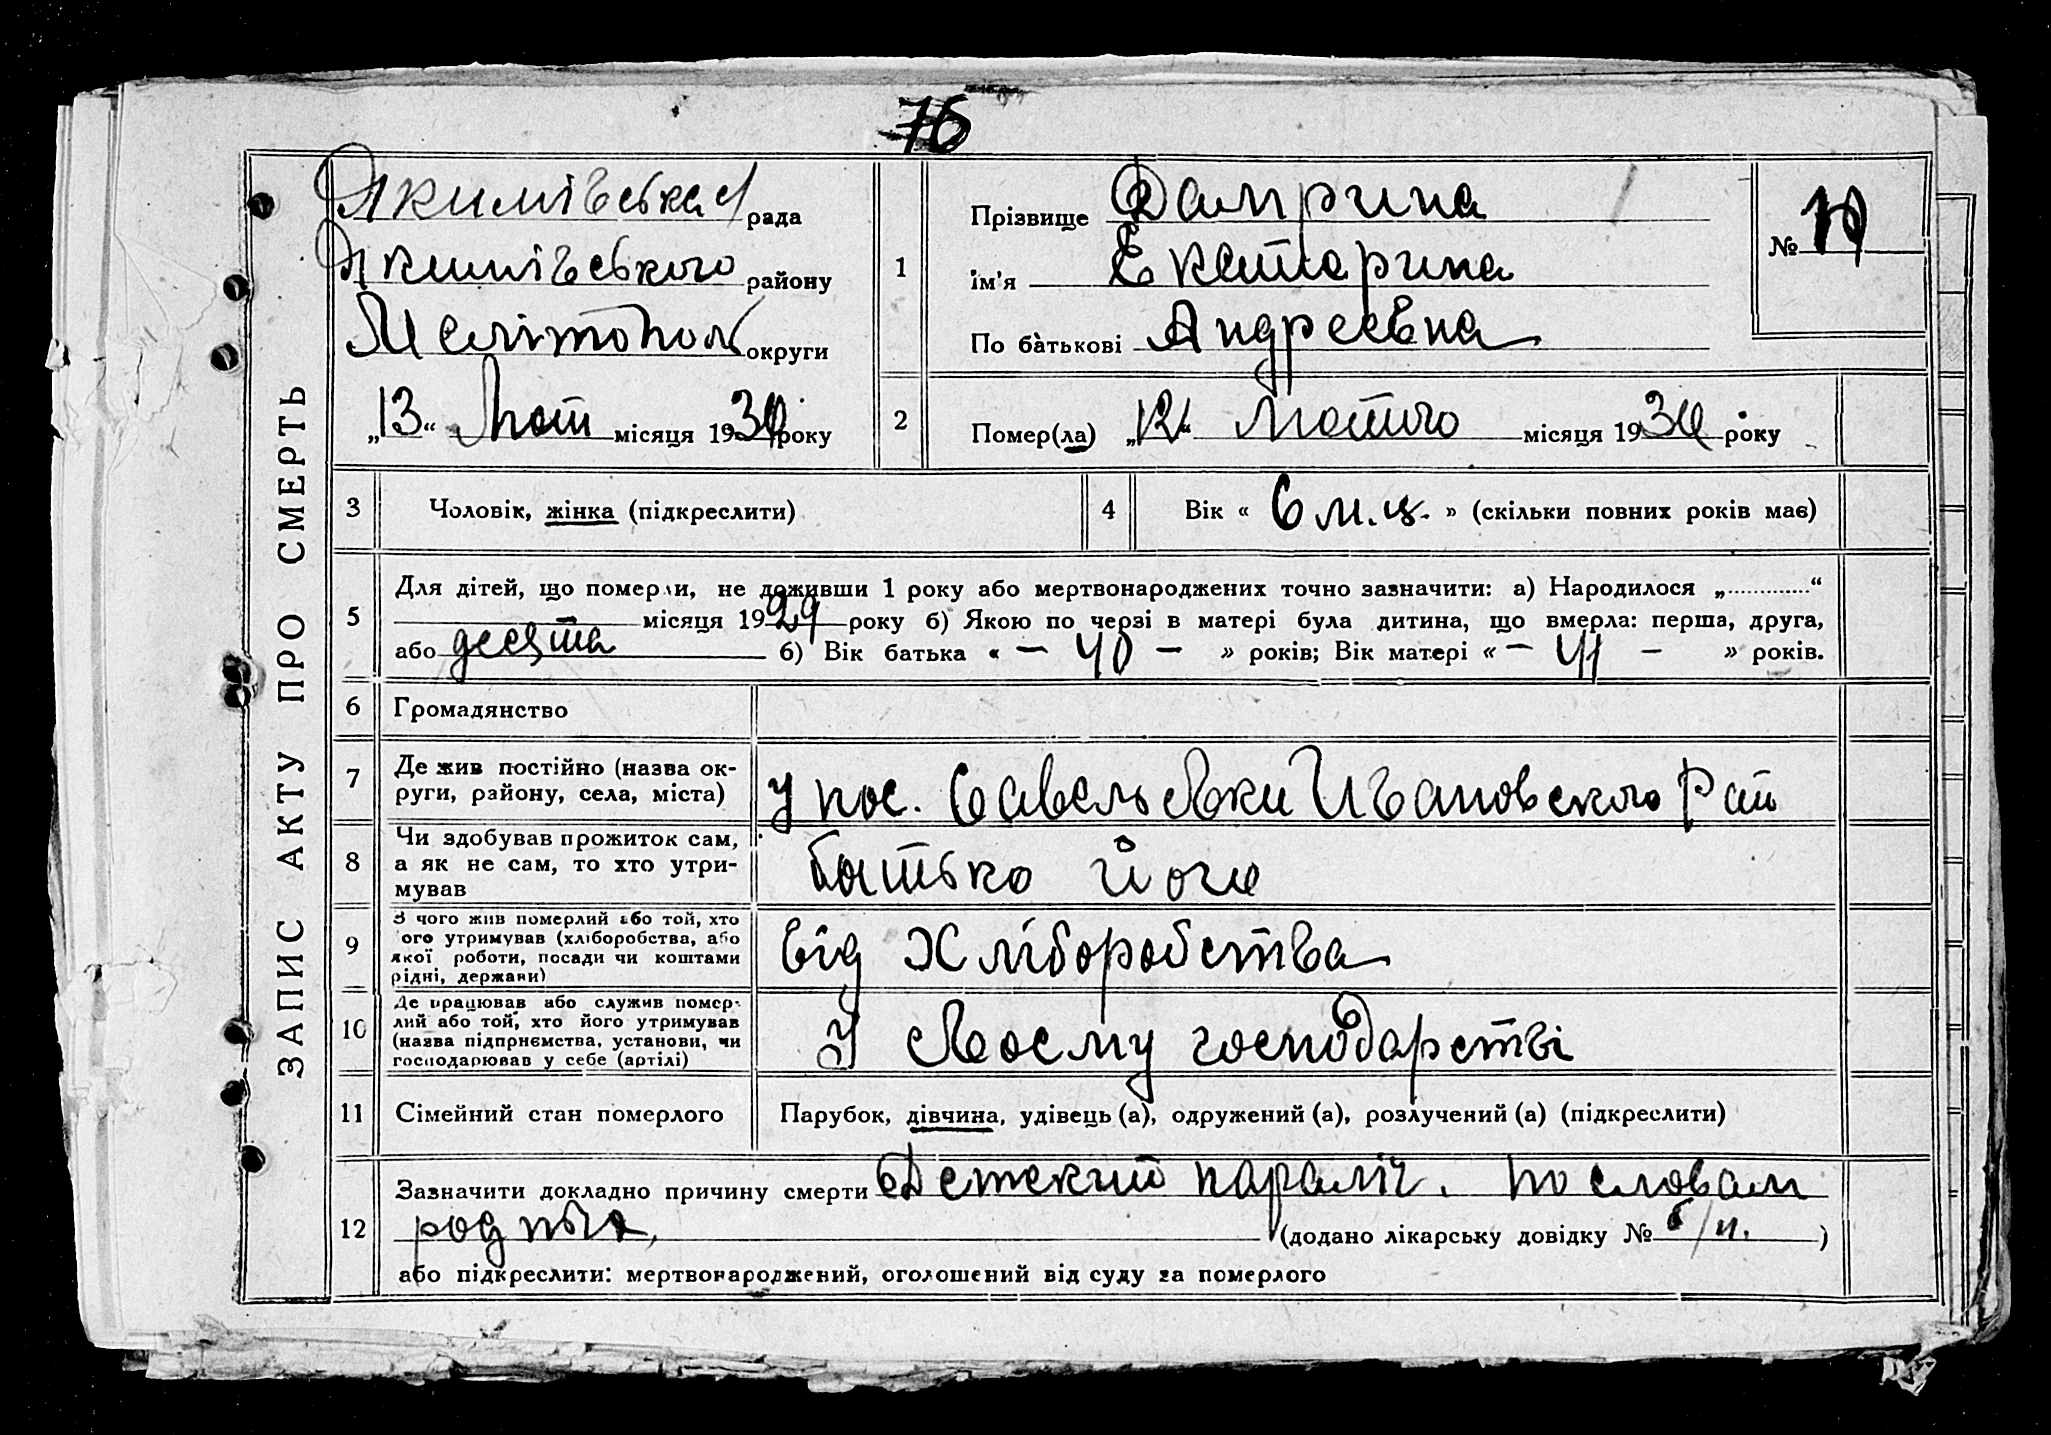 76
Якимівська рада
Якимівського району
Мелітопол округи
„13“ Лют місяця 1930 року
1
Прізвище Дамрина
ім'я Екатерина
По батькові Андреевна
№ 19
2
Помер(ла) „12“ Лютого місяця 1930 року
ЗАПИС АКТУ ПРО СМЕРТЬ
3
Чоловік, жінка (підкреслити)
4
Вік « 6 м.ц. » (скільки повних років має)
5
Для дітей, що померли, не доживши 1 року або мертвонароджених точно зазначити: а) Народилося „.............“
місяця 1929 року б) Якою по черзі в матері була дитина, що вмерла: перша, друга,
або десята б) Вік батька « — 40 — » років; Вік матері « — 41 — » років.
6
Громадянство
7
Де жив постійно (назва ок-
руги, району, села, міста)
у пос. Савельевки Ивановского Рай
8
Чи здобував прожиток сам,
а як не сам, то хто утри-
мував
батько його
9
З чого жив померлий або той, хто
ого утримував (хліборобства, або
якої роботи, посади чи коштами
рідні, держави)
від Хліборобства
10
Де працював або служив помер-
лий або той, хто його утримував
(назва підприємства, установи, чи
господарював у себе (артілі)
У своєму господарстві
11
Сімейний стан померлого
Парубок, дівчина, удівець (а), одружений (а), розлучений (а) (підкреслити)
12
Зазначити докладно причину смерти Детский параліч. по словам
родных, (додано лікарську довідку № б/н. )
або підкреслити: мертвонароджений, оголошений від суду за померлого